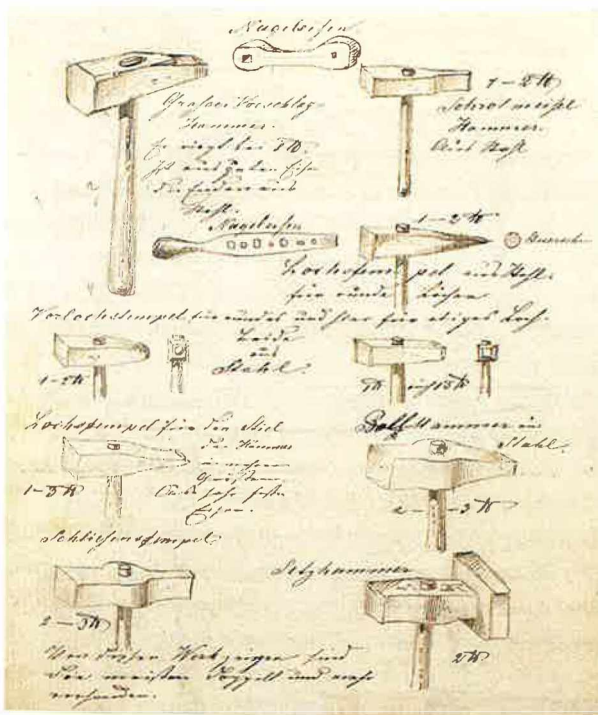 Nageleisen
Großer Vorschlag
Hammer.
Er wiegt bei 8 ℔.
Ist aus gutem Eisen
die Enden aus
Stahl.
1 – 2 ℔
Schrotmeisel
Hammer
Aus Stahl
Nageleisen
1 – 2 ℔
Lochstempel aus Stahl
für runde Löcher
Vorlochstempel für rundes und hier für ekiges Loch.
Beide
aus
Stahl.
1 – 2 ℔
Lochstempel für den Stiel
der Hämmer
in mehreren
1 – 3 ℔
Aus sehr festem
Eisen.
Hammer in
Stahl.
– 3 ℔
2 – 3 ℔
Setzhammer
2 ℔
Von diesen Werkzeugen sind
die meisten doppelt und mehr
vorhanden.